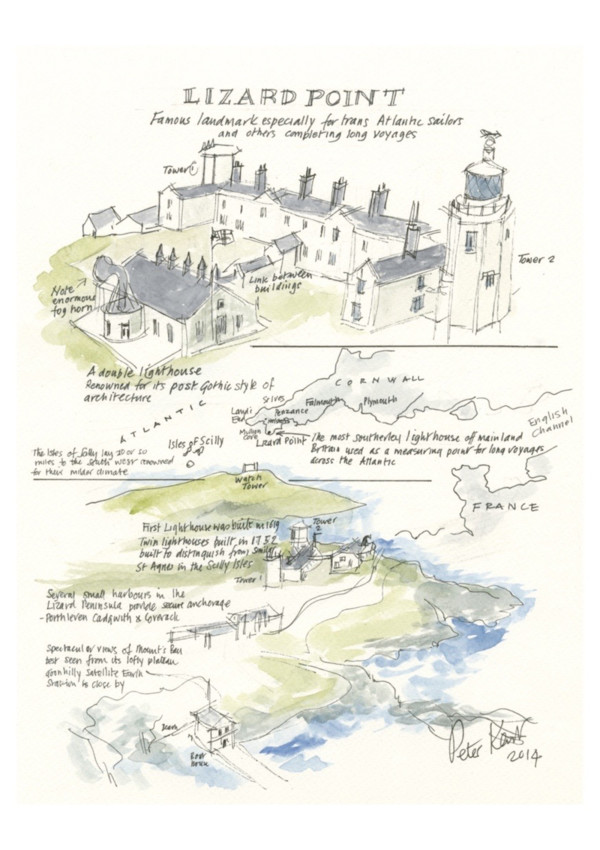 LIZARD POINT
Famous landmark especially for trans Atlantic sailors
and others completing long voyages
Tower 1
Tower 2
Note
enormous
fog horn
Link between
buildings
A double lighthouse
Renowned for its post Gothic style of
architecture
CORNWALL
St Ives
Lands
End
Penzance
Falmouth
Plymouth
Mullion
Cove
Lizard Point
ATLANTIC
Isles of Scilly
English
Channel
The Isles of Scilly lay 20 or 30
miles to the South West renowned
for their milder climate
The most southerley lighthouse of mainland
Britain used as a measuring point for long voyages
across the Atlantic
FRANCE
Watch
Tower
First Lighthouse was built in 1619
Twin lighthouses built in 1752
built to distinguish from
St Agnes in the Scilly Isles
Tower
2
Tower 1
Several small harbours in the
Lizard Peninsula provide secure anchorage
- Porthleven Cadgwith & Coverack
Spectacular views of Mount's Bay
best seen from its lofty plateau
Goonhilly Satellite Earth
Station is close by
Peter Kent
2014